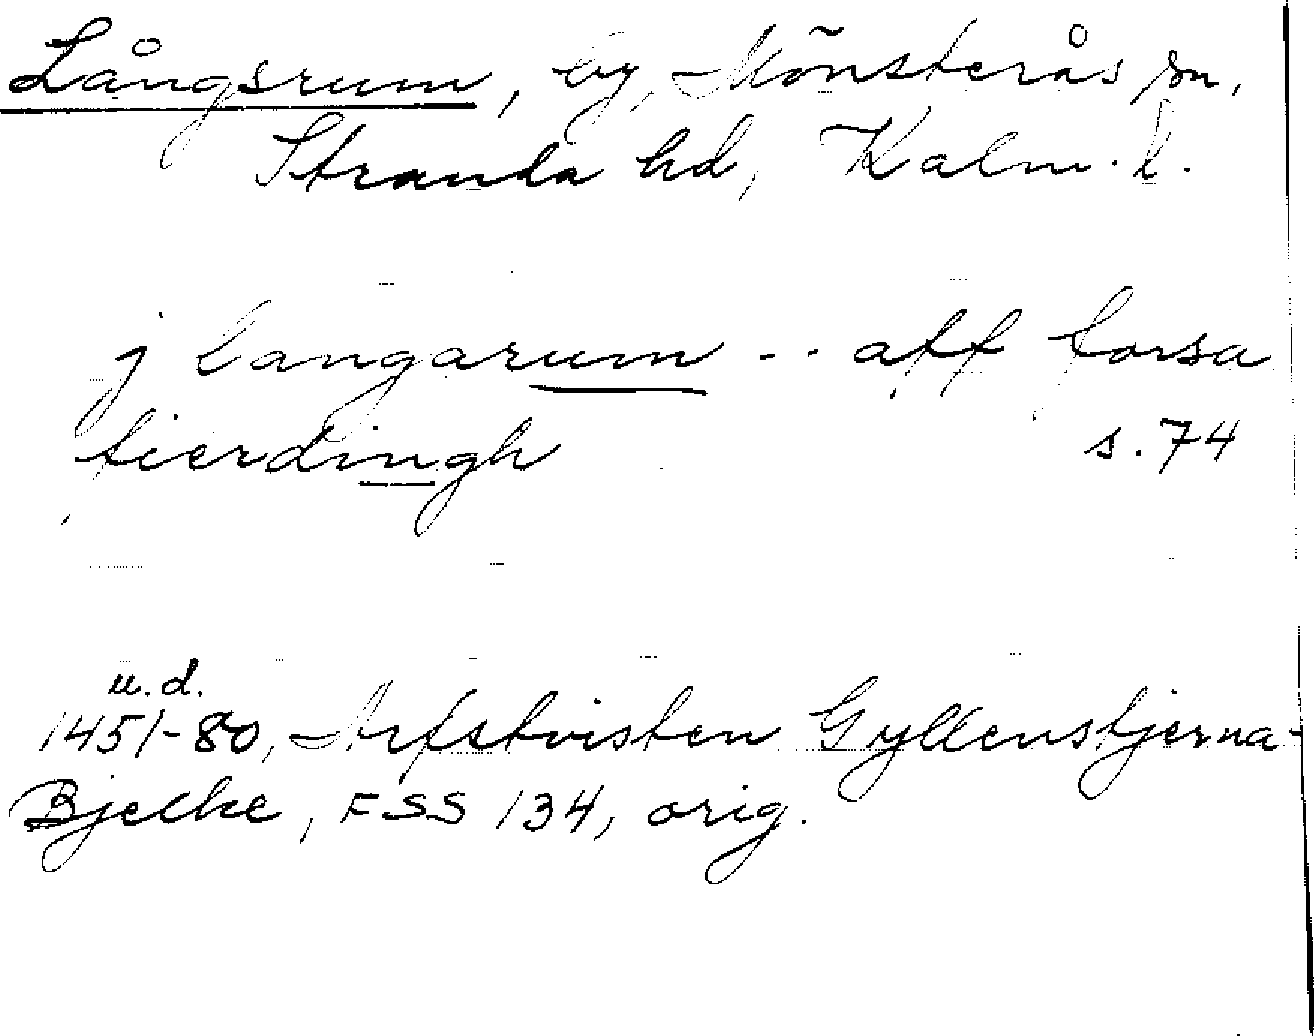 Långsrum, by, Mönsterås sn,
Stranda hd, Kalm. l.
j langarum -- aff forsa
fierdingh s. 74
u.d.
1451-80, Arfstvisten Gyllenstjerna-
Bjelke, FSS 134, orig.